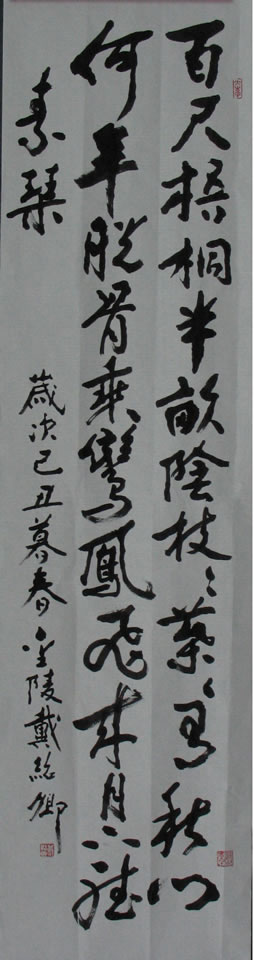 百尺梧桐半畝陰枝〻葉〻有秋心
何年脱骨乘鸞鳳飛來月下聽
素琴
歲次己丑暮春金陵戴総卿